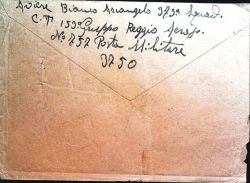 Aviere Bianco Arcangelo 373ª Squad.
C.T 153º Gruppo Reggio Aereop.
Nº 252 Posta Militare
3750